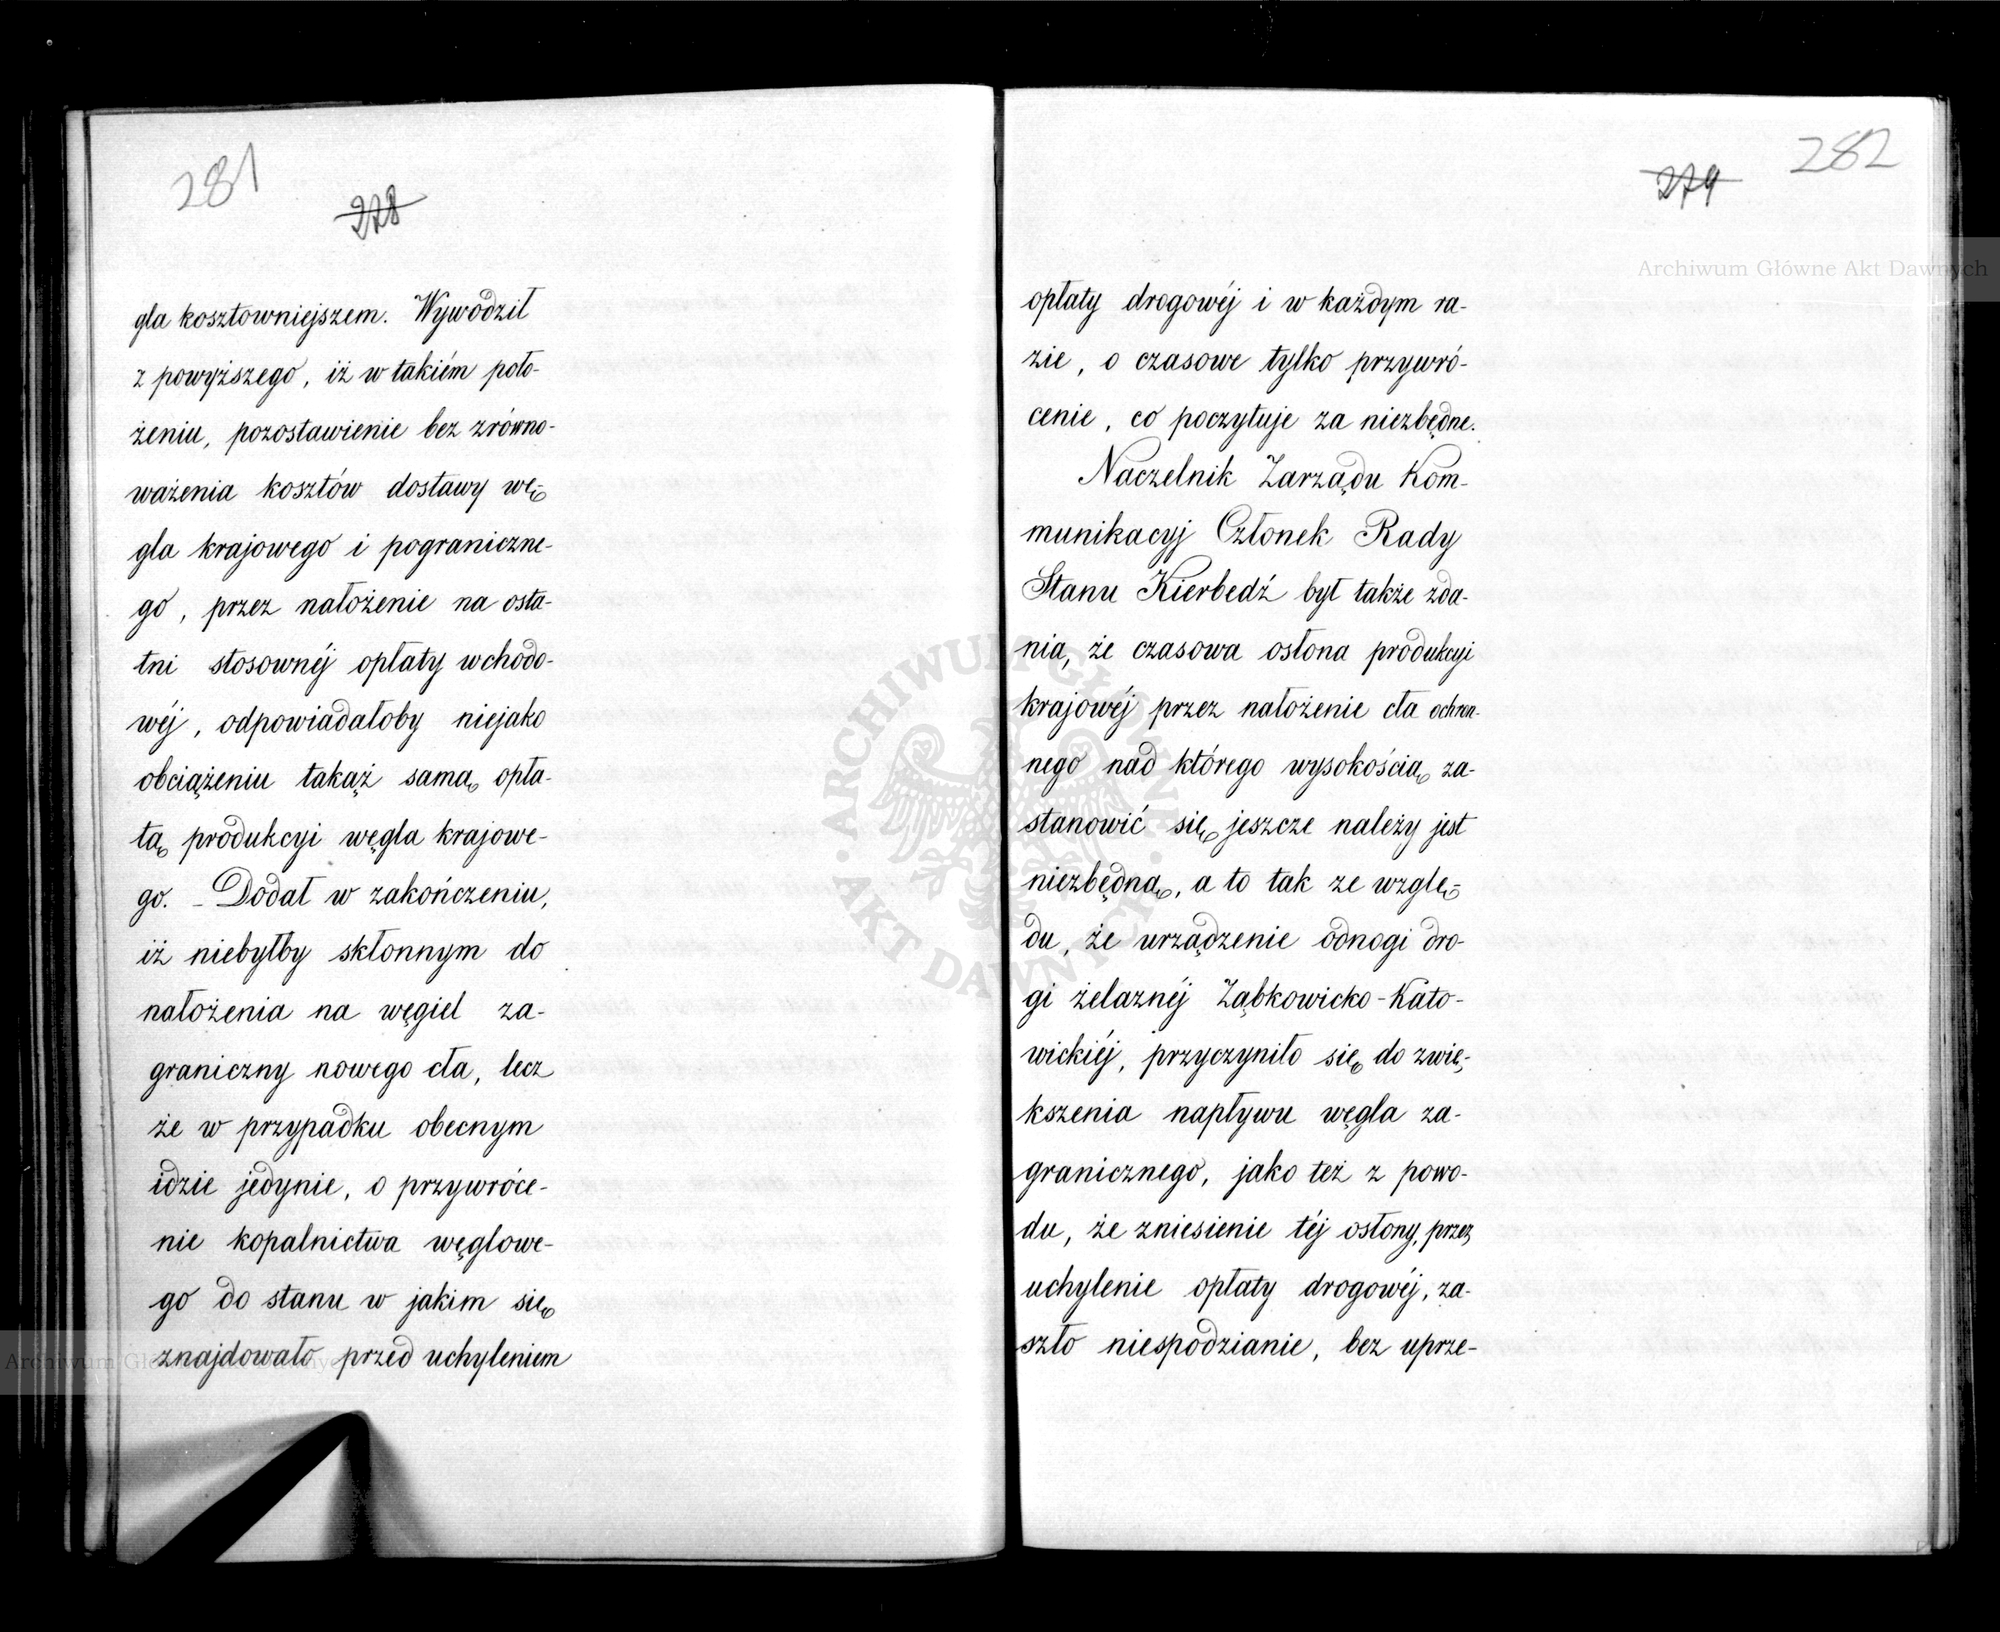 281
278
gla kosztowniejszem. Wywodził
z powyższego, iż w takiém poło-
żeniu, pozostawienie bez zrówno-
ważenia kosztów dostawy wę-
gla krajowego i pograniczne-
go, przez nałożenie na osta-
tni stosownéj opłaty wchodo-
wéj, odpowiadałoby niejako
obciążeniu takąż samą opła-
tą produkcyi węgla krajowe-
go. – Dodał w zakończeniu,
iż niebyłby skłonnym do
nałożenia na węgiel za-
graniczny nowego cła, lecz
że w przypadku obecnym
idzie jedynie, o przywróce-
nie kopalnictwa węglowe-
go do stanu w jakim się
znajdowało przed uchyleniem
282
279
opłaty drogowéj i w każdym ra-
zie, o czasowe tylko przywró-
cenie, co poczytuje za niezbędne.
Naczelnik Zarządu Kom-
munikacyj Członek Rady
Stanu Kierbedź był także zda-
nia, że czasowa osłona produkcyi
krajowéj przez nałożenie cła ochron-
nego nad którego wysokością za-
stanowić się jeszcze należy jest
niezbędną, a to tak ze wzglę-
du, że urządzenie odnogi dro-
gi żelaznéj Ząbkowicko-Kato-
wickiéj, przyczyniło się do zwię-
kszenia napływu węgla za-
granicznego, jako też z powo-
du, że zniesienie téj osłony, przez
uchylenie opłaty drogowéj, za-
szło niespodzianie, bez uprze-
Archiwum Główne Akt Dawnych
ARCHIWUM GŁÓWNE · AKT DAWNYCH ·
Archiwum Główne Akt Dawnych